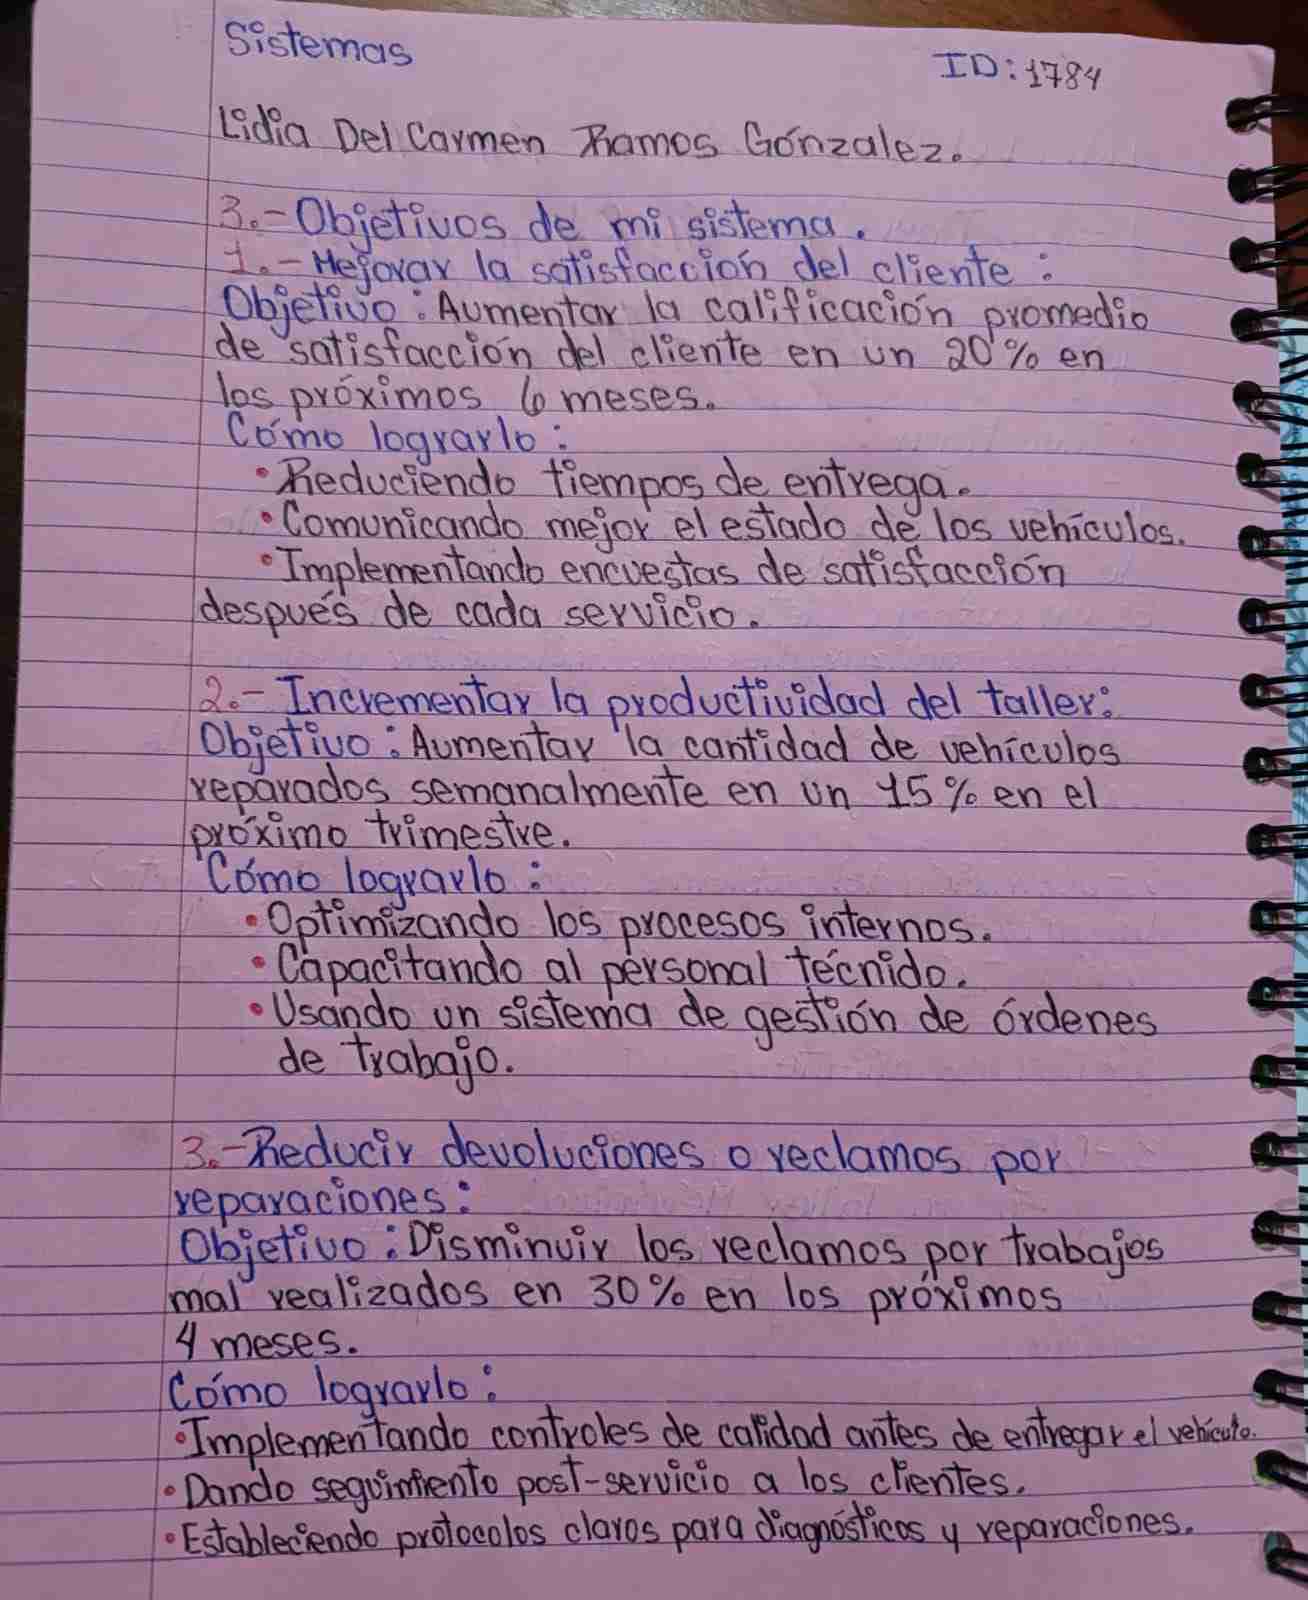 Sistemas
ID: 1784
Lidia Del Carmen Ramos Gónzalez.
3.- Objetivos de mi sistema.
1.- Mejorar la satisfacción del cliente:
Objetivo: Aumentar la calificación promedio
de satisfacción del cliente en un 20% en
los próximos 6 meses.
Cómo lograrlo:
• Reduciendo tiempos de entrega.
• Comunicando mejor el estado de los vehículos.
• Implementando encuestas de satisfacción
después de cada servicio.
2.- Incrementar la productividad del taller:
Objetivo: Aumentar la cantidad de vehículos
reparados semanalmente en un 15% en el
próximo trimestre.
Cómo lograrlo:
• Optimizando los procesos internos.
• Capacitando al personal técnido.
• Usando un sistema de gestión de órdenes
de trabajo.
3.- Reducir devoluciones o reclamos por
reparaciones:
Objetivo: Disminuir los reclamos por trabajos
mal realizados en 30% en los próximos
4 meses.
Cómo lograrlo:
• Implementando controles de calidad antes de entregar el vehículo.
• Dando seguimiento post-servicio a los clientes.
• Estableciendo protocolos claros para diagnósticos y reparaciones.